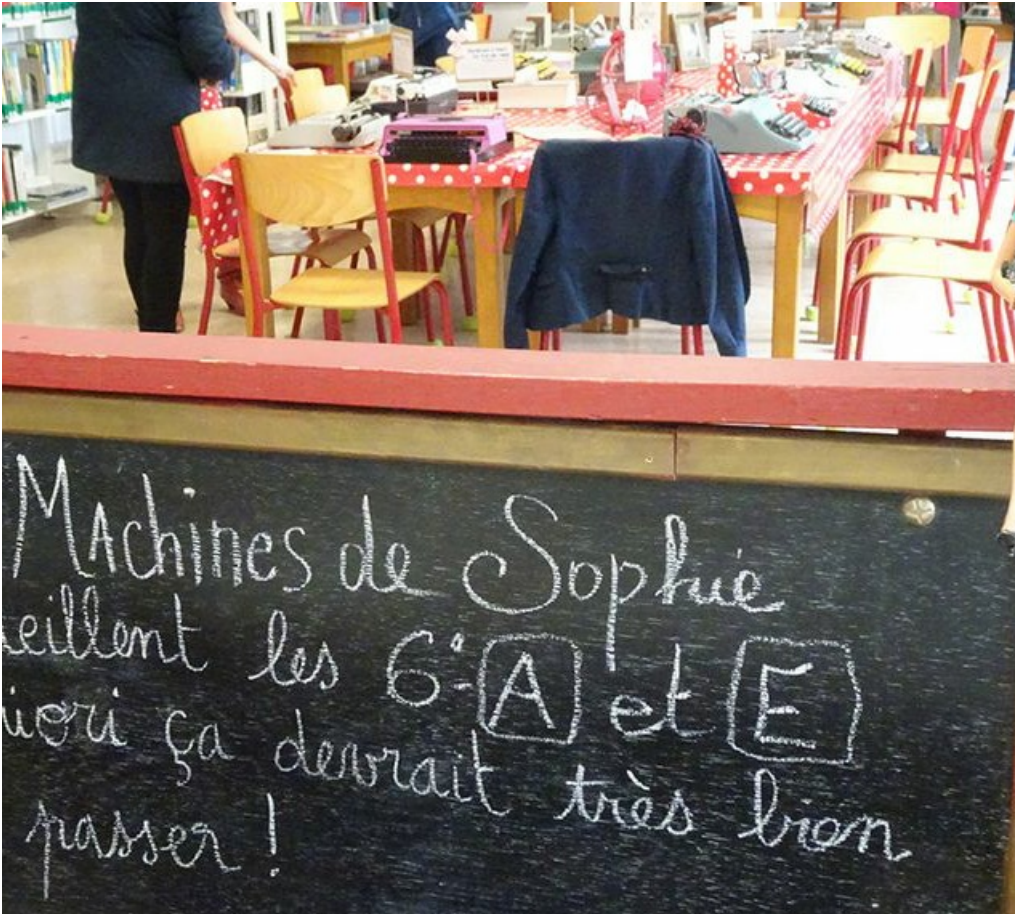 Machines de Sophie
eillent les 6e A et E
iori ça devrait très bien
passer !